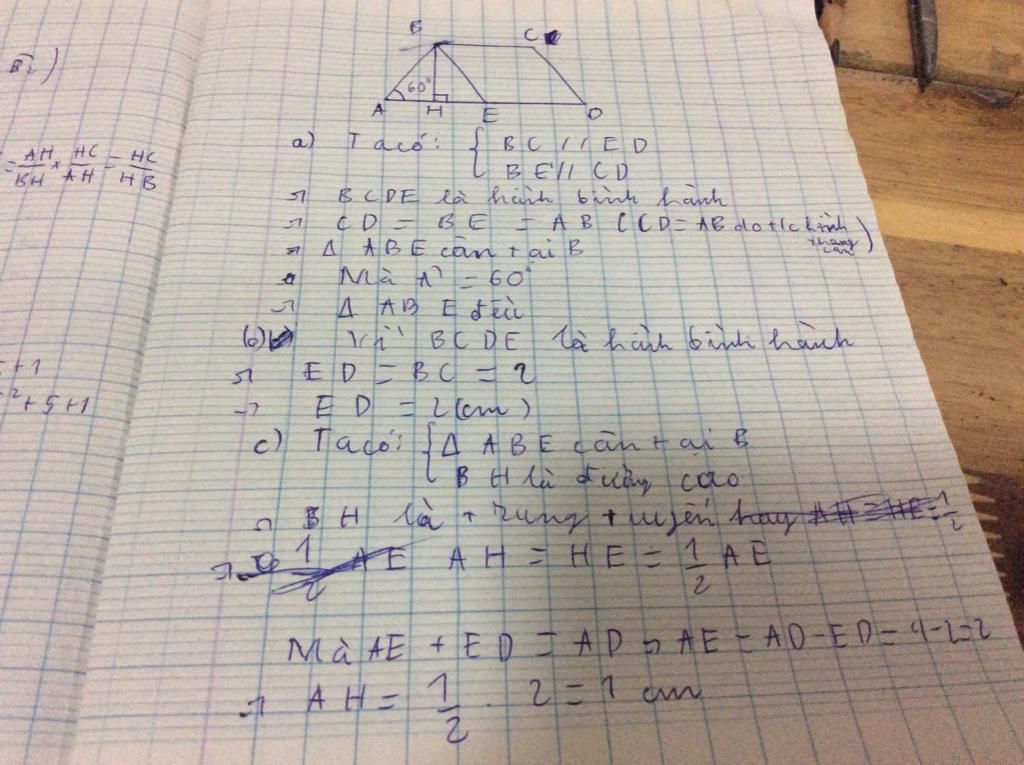 B2)
= AH/BH × HC/AH = HC/HB
+ 1
2 + 5 + 1
B C
60°
A H E D
a) Ta có: { BC // ED
BE // CD
=> BCDE là hình bình hành
=> CD = BE = AB (CD = AB do t/c hình thang cân)
=> Δ ABE cân tại B
Mà A = 60°
=> Δ ABE đều
b) Vì BCDE là hình bình hành
=> ED = BC = 2
=> ED = 2 (cm)
c) Ta có: { Δ ABE cân tại B
BH là đường cao
=> BH là trung tuyến hay AH = HE = 1/2
=> 1/2 AE AH = HE = 1/2 AE
Mà AE + ED = AD => AE = AD - ED = 4 - 2 = 2
=> AH = 1/2 . 2 = 1 cm